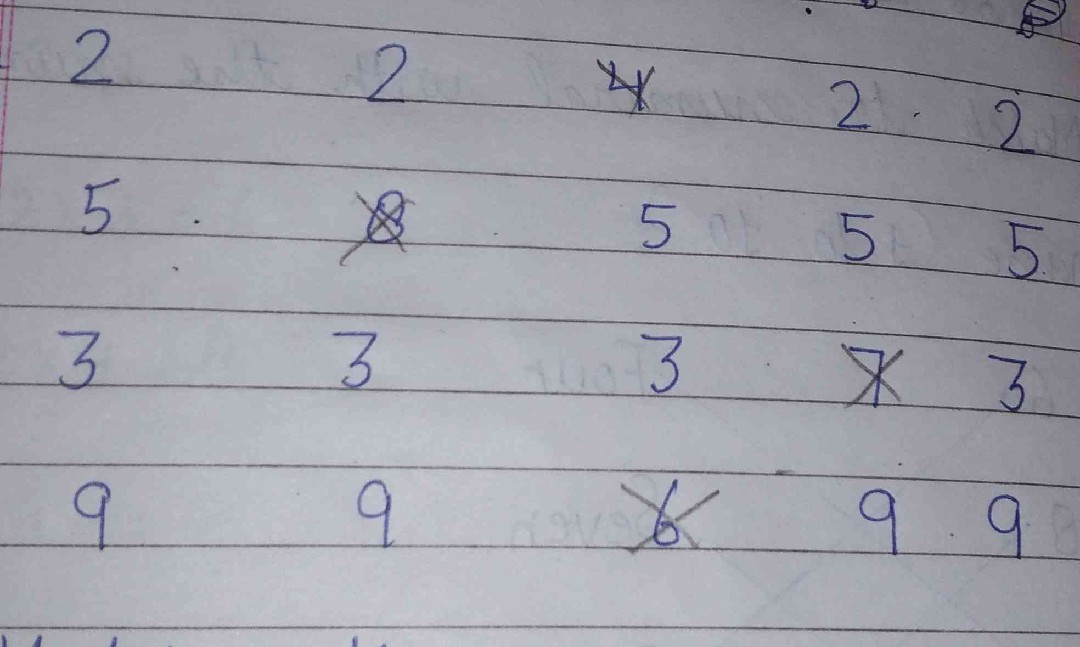 2 2 4 2 2
5 8 5 5 5
3 3 3 7 3
9 9 6 9 9